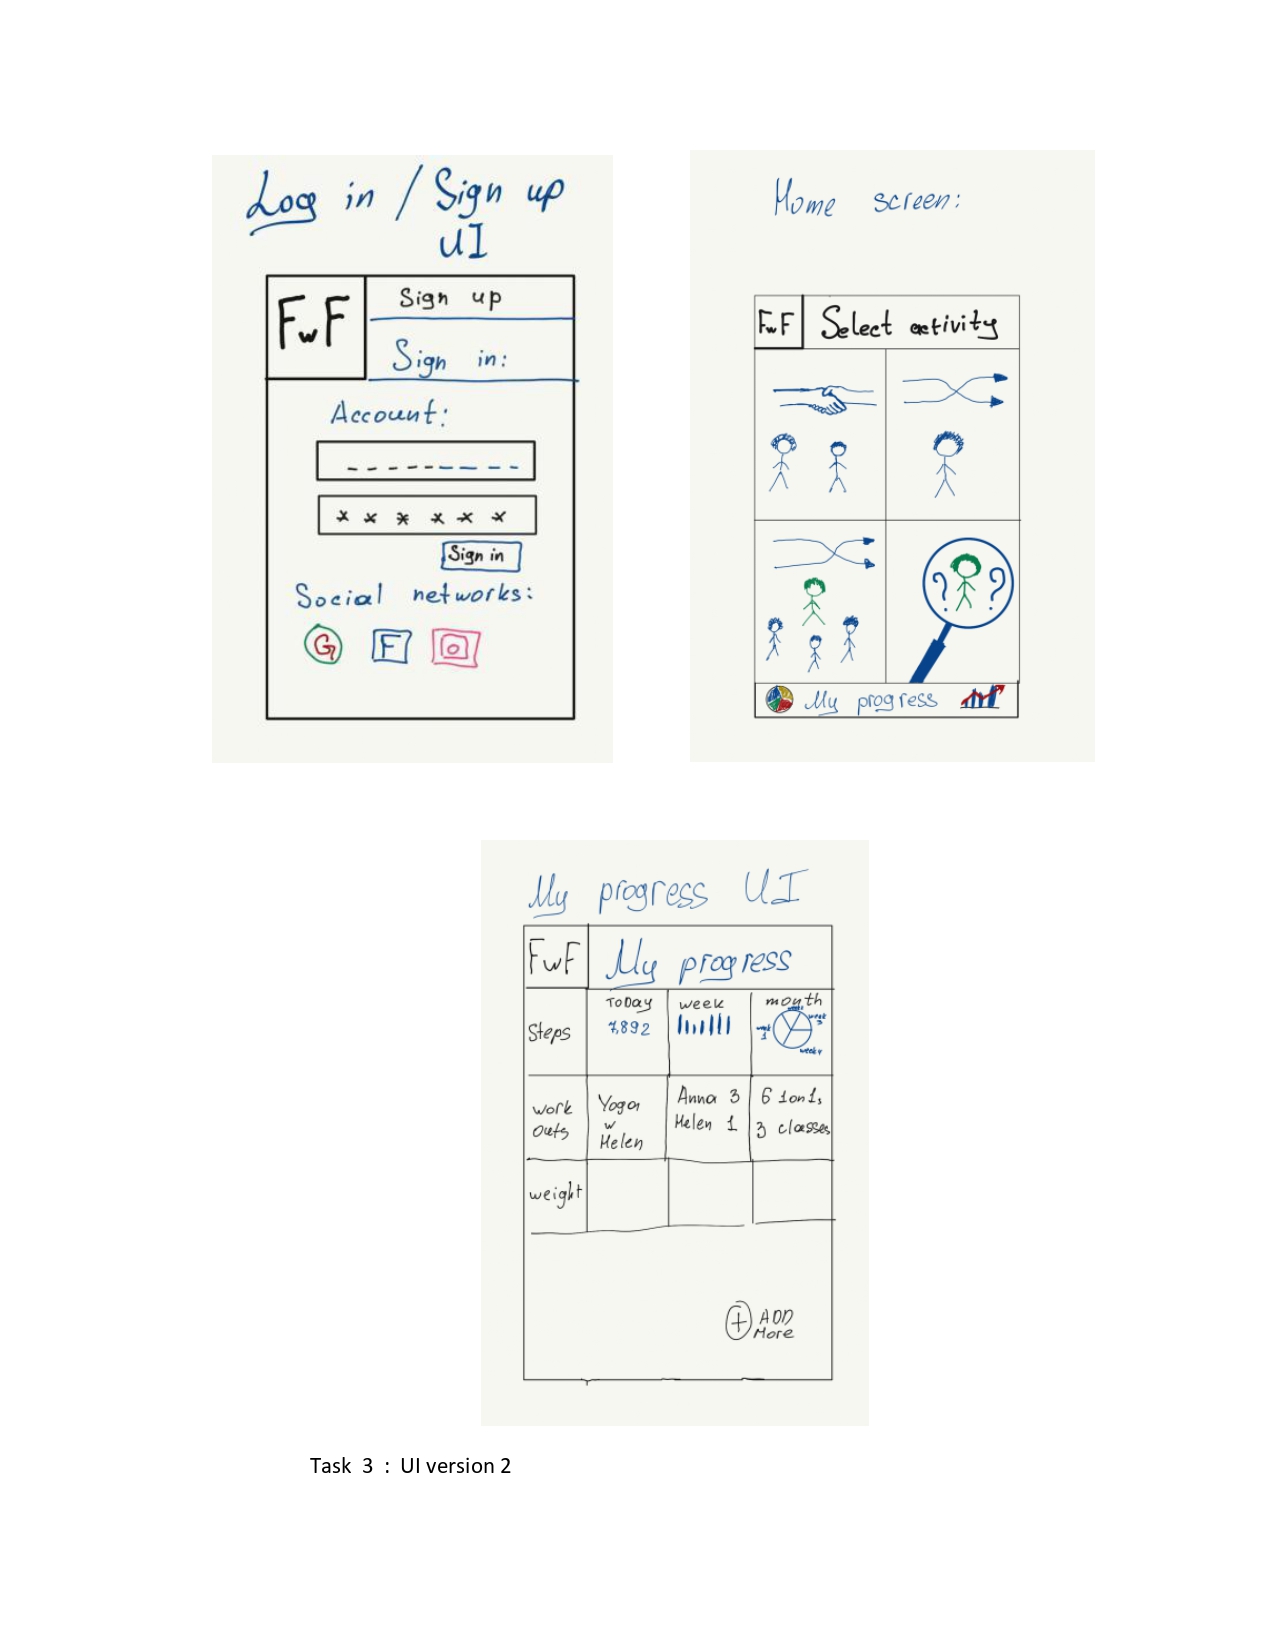 Log in / Sign up
UI
FwF
Sign up
Sign in:
Account:
* * * * * *
Sign in
Social networks:
G F
Home screen:
FwF Select activity
? ?
My progress
My progress UI
FwF My progress
Today week month
Steps 7,892
week
week 3
week 1
week 4
work outs
Yoga w Helen
Anna 3
Helen 1
6 1on1s
3 classes
weight
+ ADD More
Task 3 : UI version 2